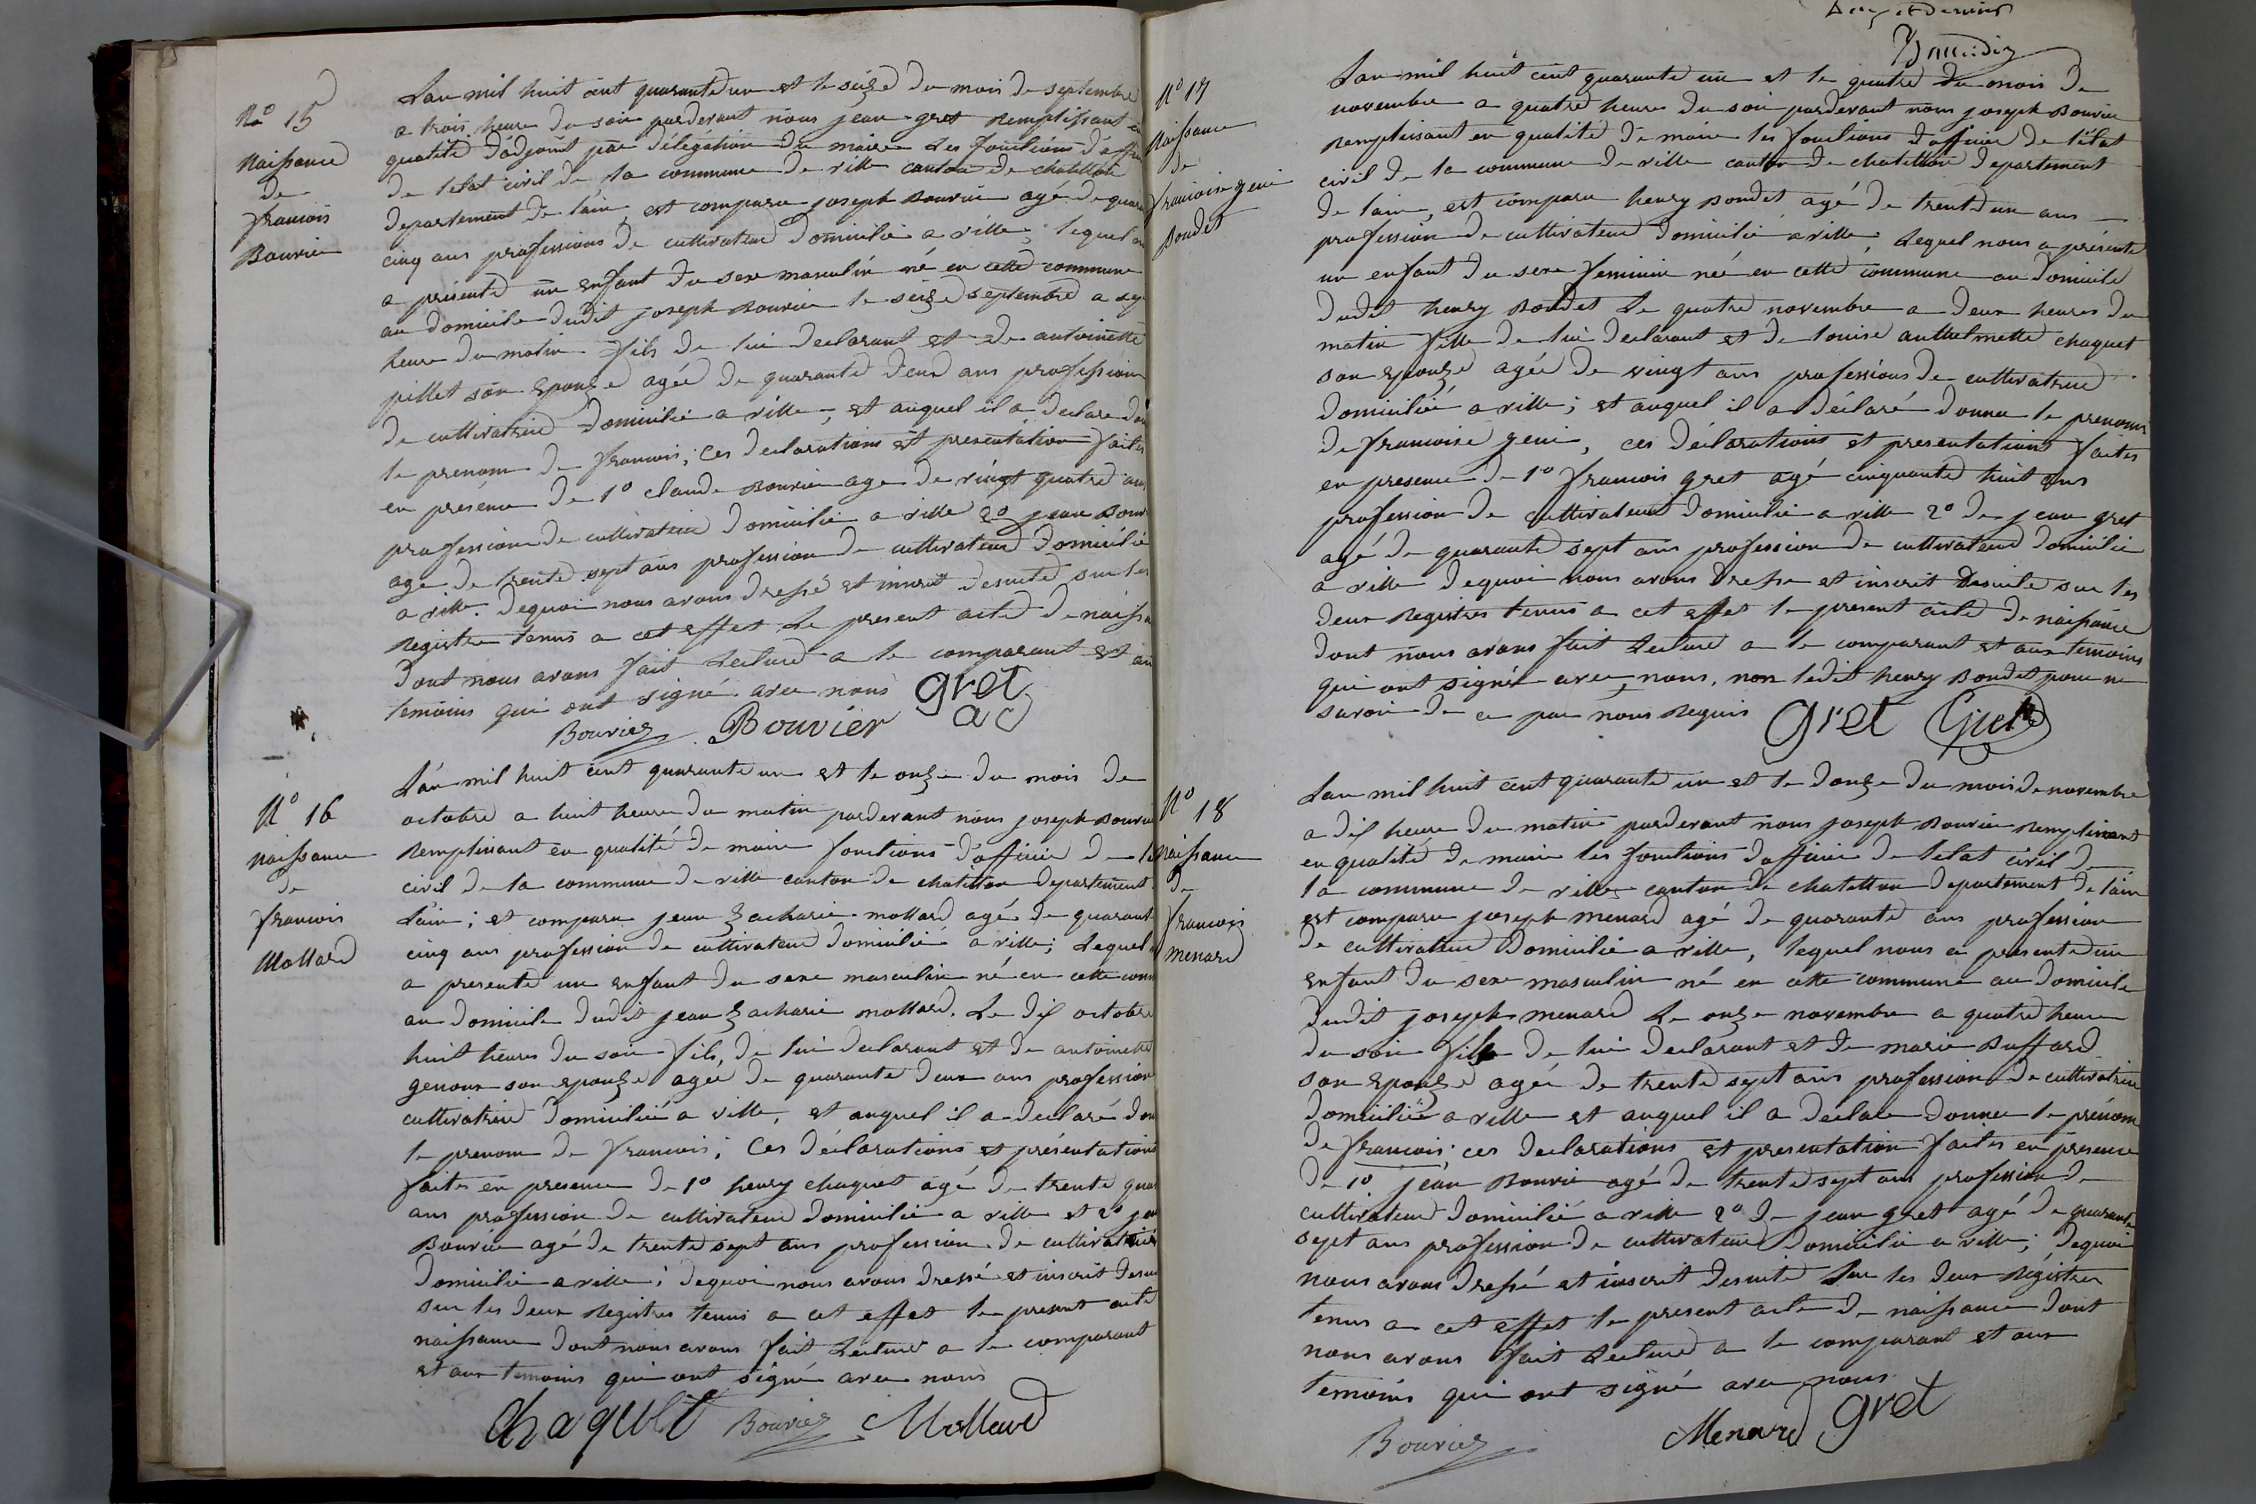 No 15
Naissance
de
francois
Bouvier
L'an mil huit cent quarante un et le seize du mois de septembre
a trois heure du soir pardevant nous jean gret Remplissant en
qualité d'adjoint par délégation du maire Les fonctions d'
de letat civil de la commune de ville canton de chatillon
departement de l'ain, est comparu joseph Bouvier agé de
cinq ans professions de cultivateur domicilié a ville, lequel
a présenté un enfant du sexe masculin né en cette commune
au domicile dudit joseph Bouvier le seize septembre a
heure du matin fils de lui declarant et de antoinette
pillet son Epouze agée de quarante deux ans profession
de cultivatrice domicilié a ville, et auquel il a declare
le prenom de francois; Ces declarations et presentation faites
en présence de 1o claude Bouvier age de vingt quatre ans
profession de cultivateur domicilié a ville 2o jean
age de trente sept ans profession de cultivateur domicilié
a ville. dequoi nous avons dressé et inscrit desuite sur les
Registre tenus a cet effet Le present acte de
dont nous avons fait Lecture a le comparant et
temoins qui ont signé avec nous gret
Bouvier Bouvier
No 16
naissance
de
francois
Mollard
L'an mil huit cent quarante un et le onze du mois de
octobre a huit heure du matin pardevant nous joseph
Remplissant en qualité de maire fonctions d'officier de
civil de la commune de ville canton de chatillon departement
L'ain; et comparu jean Zacharie mollard agé de
cinq ans profession de cultivateur domicilié a ville; Lequel
a presenté un enfant du sexe masculin né en cette
au domicile dudit jean Zacharie mollard. Le dix octobre
huit heures du soir fils, de lui declarant et de antoinette
genoux son epouze agée de quarante deux ans profession
cultivatrice domicilié a ville, et auquel il a declaré
le prenom de francois; Ces déclarations et présentations
faites en presence de 1o henry chaquet agé de trente
ans profession de cultivateur domicilié a ville et 2o
Bouvier agé de trente sept ans profession de cultivateur
domicilié a ville; dequoi nous avons dressé et inscrit
sur les deux Registres tenus a cet effet le present acte
naissance dont nous avons fait Lecture a le comparant
et aux temoins qui ont signé avec nous
Chaquet Bouvier Mollard
No 17
Naissance
de
francoise
Boudet
L'an mil huit cent quarante un et le quatre du mois de
novembre a quatre heure du soir pardevant nous joseph Bouvier
Remplissant en qualité de maire les fonctions d'officier de l'état
civil de la commune de ville canton de chatillon departement
de l'ain, est comparu henry Boudet agé de trente un ans
profession de cultivateur domicilié a ville, Lequel nous a présenté
un enfant du sexe feminin née en cette commune au domicile
dudit henry Boudet Le quatre novembre a deux heures du
matin fille de lui declarant et de louise anthelmette chaquet
son epouze agée de vingt ans professions de cultivatrice
domicilié a ville; et auquel il a déclaré donner le prenom
de francoise, ces déclarations et presentations faites
en presence de 1o francois gret agé cinquante huit ans
profession de cultivateur domicilié a ville 2o de jean gret
agé de quarante sept ans profession de cultivateur domicilié
a ville dequoi nous avons dresse et inscrit desuite sur les
deux Registres tenus a cet effet le present acte de naissance
dont nous avons fait Lecture a le comparant et aux temoins
qui ont signé avec nous, non ledit henry Boudet pour ne
savoir de ce par nous Requis gret Gret
No 18
naissance
de
francois
menard
L'an mil huit cent quarante un et le douze du mois de novembre
a dix heure du matin pardevant nous joseph Bouvier Remplissant
en qualité de maire les fonctions d'officier de letat civil de
la commune de ville canton de chatillon departement de l'ain
est comparu joseph menard agé de quarante ans profession
de cultivateur domicilié a ville, lequel nous a presenté un
enfant du sexe masculin né en cette commune au domicile
dudit joseph menard Le onze novembre a quatre heure
du soir fils de lui declarant et de marie Buffard
son epouze agée de trente sept ans profession de cultivatrice
domicilié a ville et auquel il a declare donner le prénom
de francois; ces declarations et presentation faites en presence
de 1o jean Bouvier agé de trente sept ans profession de
cultivateur domicilié a ville 2o de jean gret agé de quarante
sept ans profession de cultivateur domicilié a ville; dequoi
nous avons dressé et inscrit desuite sur les deux Registres
tenus a cet effet le present acte de naissance dont
nous avons fait Lecture a le comparant et aux
temoins qui ont signé avec nous
Bouvier Menard gret